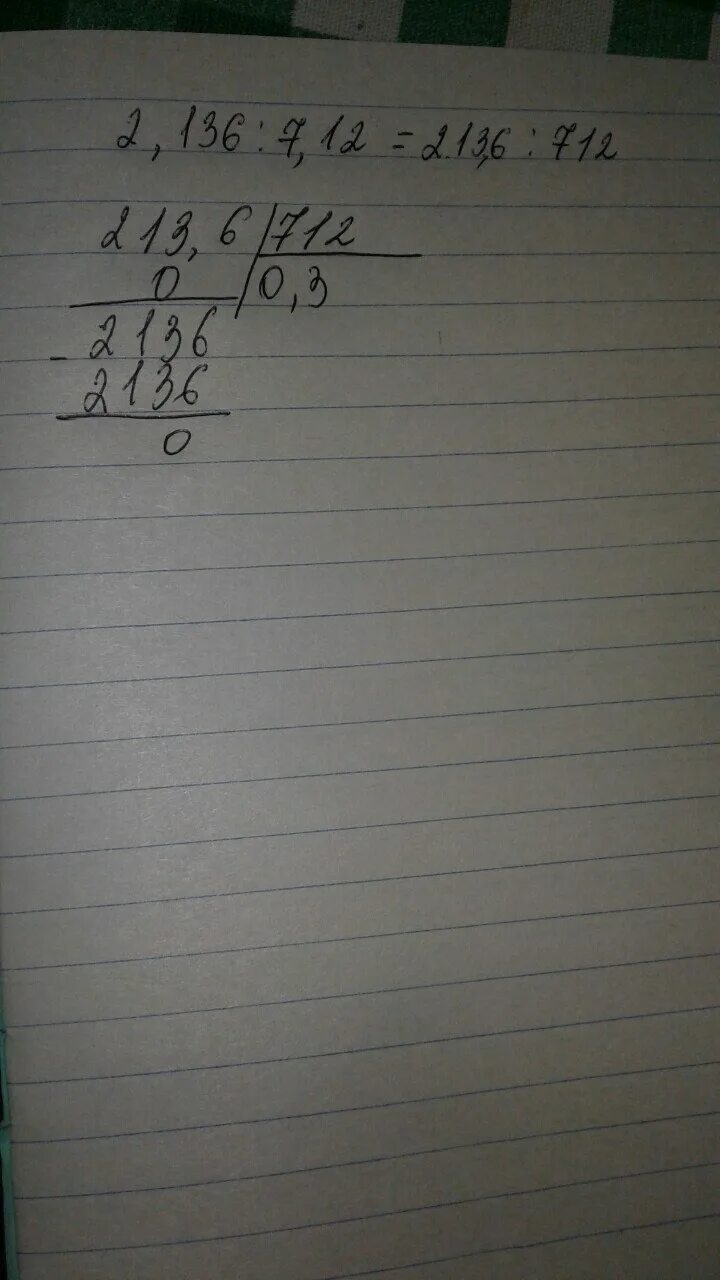 2,136 : 7,12 = 213,6 : 712
213,6 | 712
0 | 0,3
- 2136
2136
0